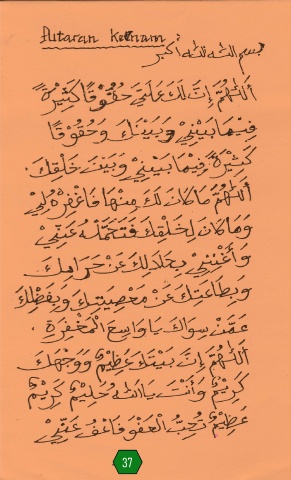 Putaran Keenam :
بسم الله الله أكبر
أَللّٰهُمَّ إِنَّ لَكَ عَلَيَّ حُقُوْقًا كَثِيْرَةً
فِيْمَا بَيْنِيْ وَبَيْنَكَ وَحُقُوْقًا
كَثِيْرَةً فِيْمَا بَيْنِيْ وَبَيْنَ خَلْقِكَ.
أَللّٰهُمَّ مَا كَانَ لَكَ مِنْهَا فَاغْفِرْهُ لِيْ
وَمَا كَانَ لِخَلْقِكَ فَتَحَمَّلْهُ عَنِّيْ
وَأَغْنِنِيْ بِحَلَالِكَ عَنْ حَرَامِكَ
وَبِطَاعَتِكَ عَنْ مَعْصِيَتِكَ وَبِفَضْلِكَ
عَمَّنْ سِوَاكَ يَا وَاسِعَ الْمَغْفِرَةِ.
أَللّٰهُمَّ إِنَّ بَيْتَكَ عَظِيْمٌ وَوَجْهَكَ
كَرِيْمٌ وَأَنْتَ يَا اَللّٰهُ حَلِيْمٌ كَرِيْمٌ
عَظِيْمٌ تُحِبُّ الْعَفْوَ فَاعْفُ عَنِّيْ
37